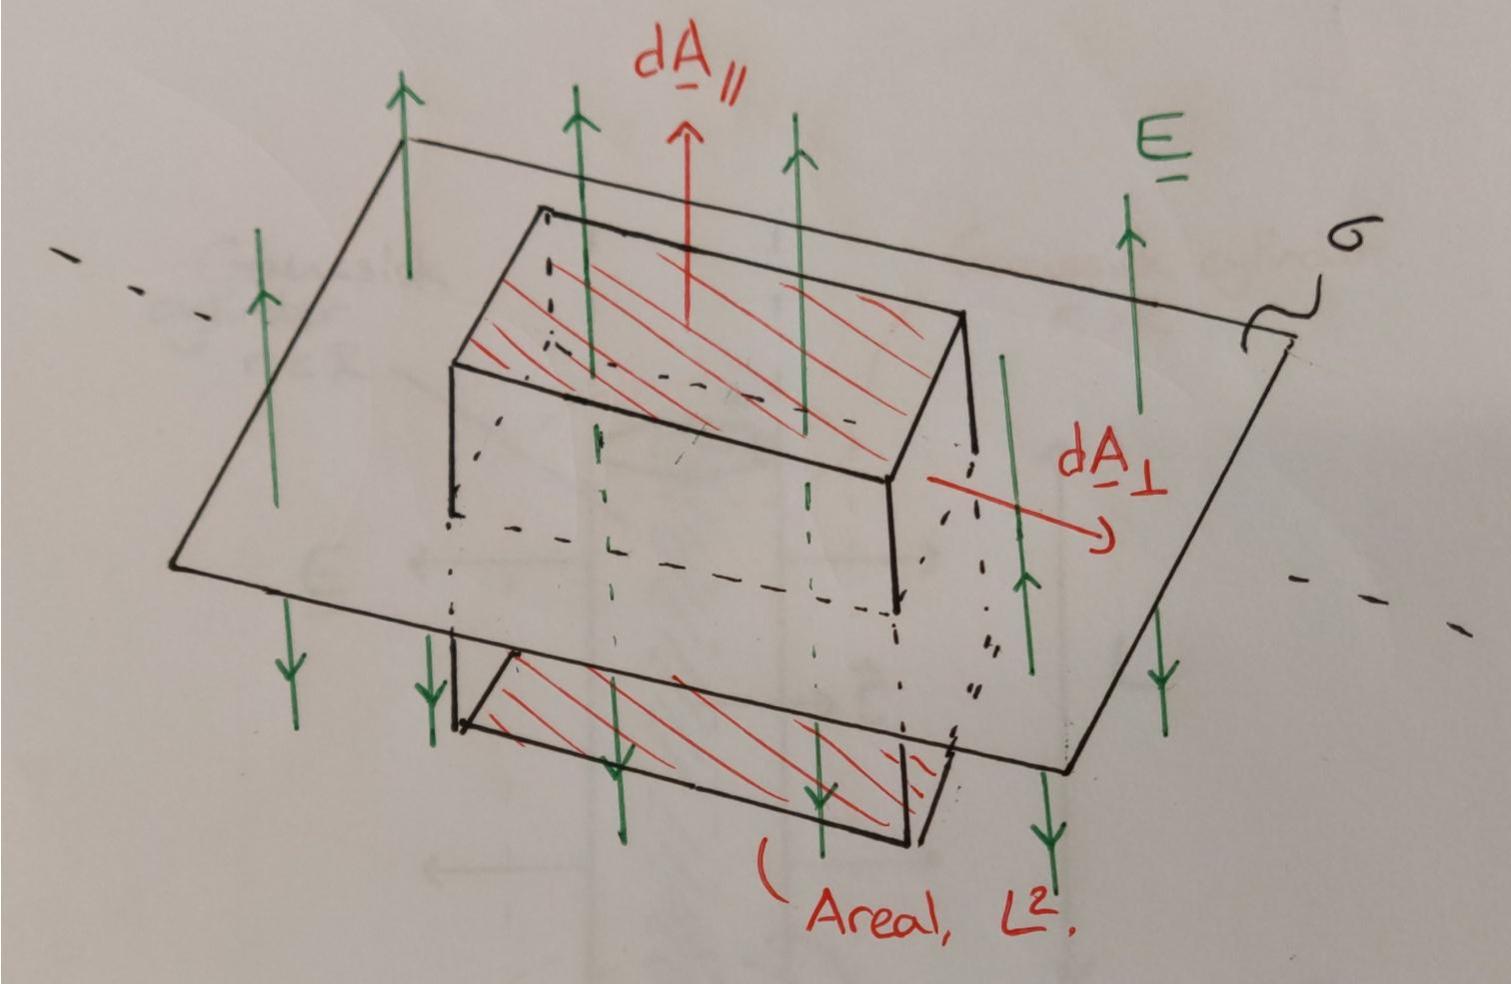 dA∥
E
σ
dA⊥
Areal, L².